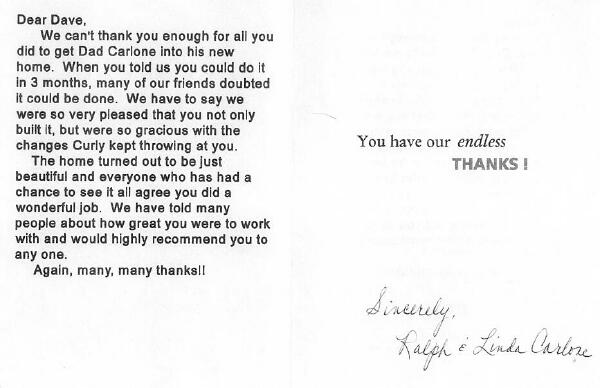 Dear Dave,
We can't thank you enough for all you
did to get Dad Carlone into his new
home. When you told us you could do it
in 3 months, many of our friends doubted
it could be done. We have to say we
were so very pleased that you not only
built it, but were so gracious with the
changes Curly kept throwing at you.
The home turned out to be just
beautiful and everyone who has had a
chance to see it all agree you did a
wonderful job. We have told many
people about how great you were to work
with and would highly recommend you to
any one.
Again, many, many thanks!!
You have our endless
THANKS !
Sincerely,
Ralph & Linda Carlone